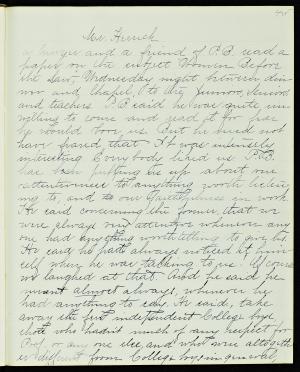 Mr. French
a lawyer and a friend of P.B. read a
paper on the subject Women Before
the Law, Wednesday night between din-
ner and Chapel, to the Juniors, Seniors
and teachers. P.B. said he was quite un-
willing to come and read it for fear
he would bore us. But he need not
have feared that. It was intensely
interesting. Everybody liked it. P.B.
has been puffing us up about our
attentiveness to anything worth listen-
ing to, and to our faithfulness in work.
He said concerning the former, that we
were always very attentive whenever any
one had anything worth telling to give us.
He said he had always noticed it him-
self when he was talking to us! Of course
we laughed at that. And he said he
meant almost always, whenever he
had anything to say. He said, take
away the first independent College boys,
that who hadn't much of any respect for
Prof. or any one else, and who were altogether
different from College boys in general,